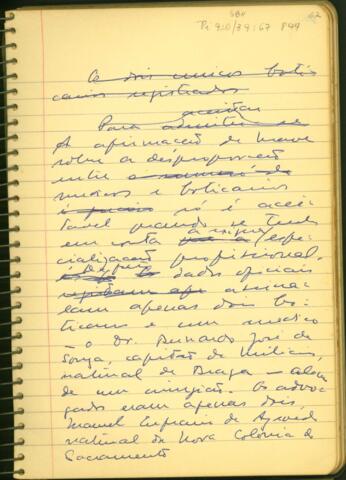 SBH
Pi 920/39:67 P99
62
Os dois unicos boti
carios registrados
aceitar
Para admittir se
A afirmação de Mawe
sobre a desproporção
entre o numero de
medicos e boticarios
é só é acei
tavel quando se tenha
em conta a espe
cialização profissional.
Os dados oficiais
registram assina
lam apenas dois bo
ticarios e um medico
– o Dr. Bernardo José de
Souza, capitão de milicias,
natural de Braga – alem
de um cirurgião. Os advo
gados eram apenas dois,
Manuel Eufrasio de Azevedo
natural da Nova Colonia do
Sacramento